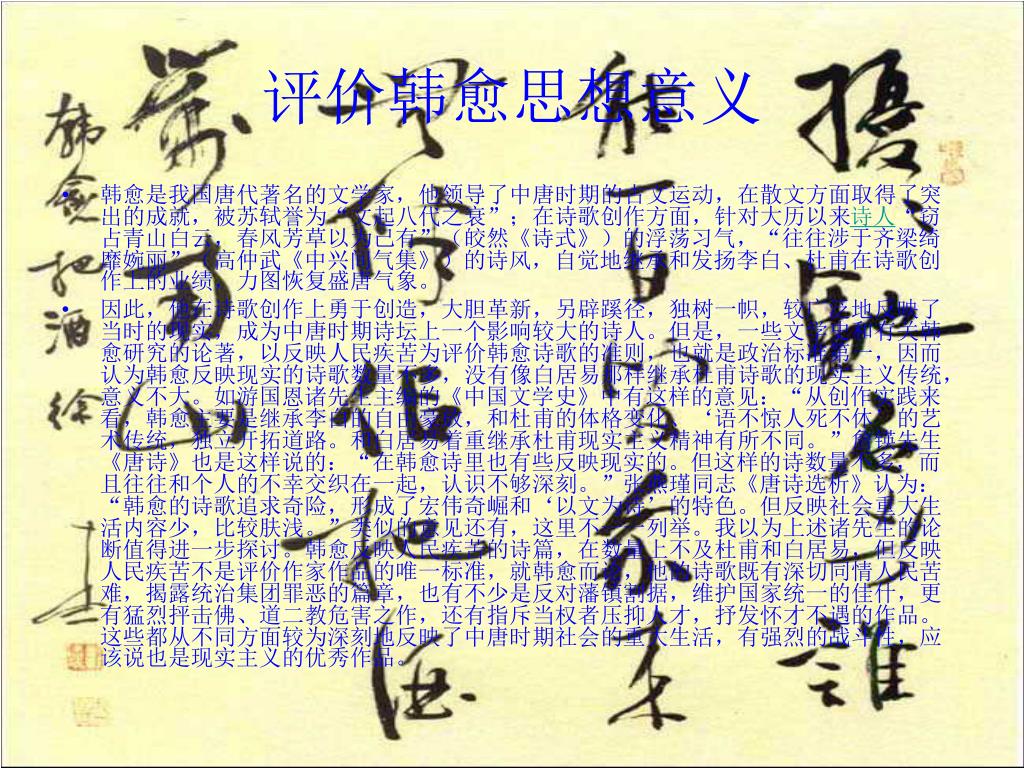 评价韩愈思想意义
• 韩愈是我国唐代著名的文学家，他领导了中唐时期的古文运动，在散文方面取得了突
出的成就，被苏轼誉为“文起八代之衰”；在诗歌创作方面，针对大历以来诗人“窃
占青山白云、春风芳草以为己有”（皎然《诗式》）的浮荡习气，“往往涉于齐梁绮
靡婉丽”（高仲武《中兴间气集》）的诗风，自觉地继承和发扬李白、杜甫在诗歌创
作上的业绩，力图恢复盛唐气象。
• 因此，他在诗歌创作上勇于创造，大胆革新，另辟蹊径，独树一帜，较广泛地反映了
当时的现实，成为中唐时期诗坛上一个影响较大的诗人。但是，一些文学史和有关韩
愈研究的论著，以反映人民疾苦为评价韩愈诗歌的准则，也就是政治标准第一，因而
认为韩愈反映现实的诗歌数量不多，没有像白居易那样继承杜甫诗歌的现实主义传统，
意义不大。如游国恩诸先生主编的《中国文学史》中有这样的意见：“从创作实践来
看，韩愈主要是继承李白的自由豪放，和杜甫的体格变化、‘语不惊人死不休’的艺
术传统，独立开拓道路。和白居易着重继承杜甫现实主义精神有所不同。”先生
《唐诗》也是这样说的：“在韩愈诗里也有些反映现实的。但这样的诗数量不多，而
且往往和个人的不幸交织在一起，认识不够深刻。”张燕瑾同志《唐诗选析》认为：
“韩愈的诗歌追求奇险，形成了宏伟奇崛和‘以文为诗’的特色。但反映社会重大生
活内容少，比较肤浅。”类似的意见还有，这里不一一列举。我以为上述诸先生的论
断值得进一步探讨。韩愈反映人民疾苦的诗篇，在数量上不及杜甫和白居易，但反映
人民疾苦不是评价作家作品的唯一标准，就韩愈而言，他的诗歌既有深切同情人民苦
难，揭露统治集团罪恶的篇章，也有不少是反对藩镇割据，维护国家统一的佳什，更
有猛烈抨击佛、道二教危害之作，还有指斥当权者压抑人才，抒发怀才不遇的作品。
这些都从不同方面较为深刻地反映了中唐时期社会的重大生活，有强烈的战斗性，应
该说也是现实主义的优秀作品。
擾馳名者誰
能一日閑我來
無伴侶把酒
對南山
韓愈把酒 徐